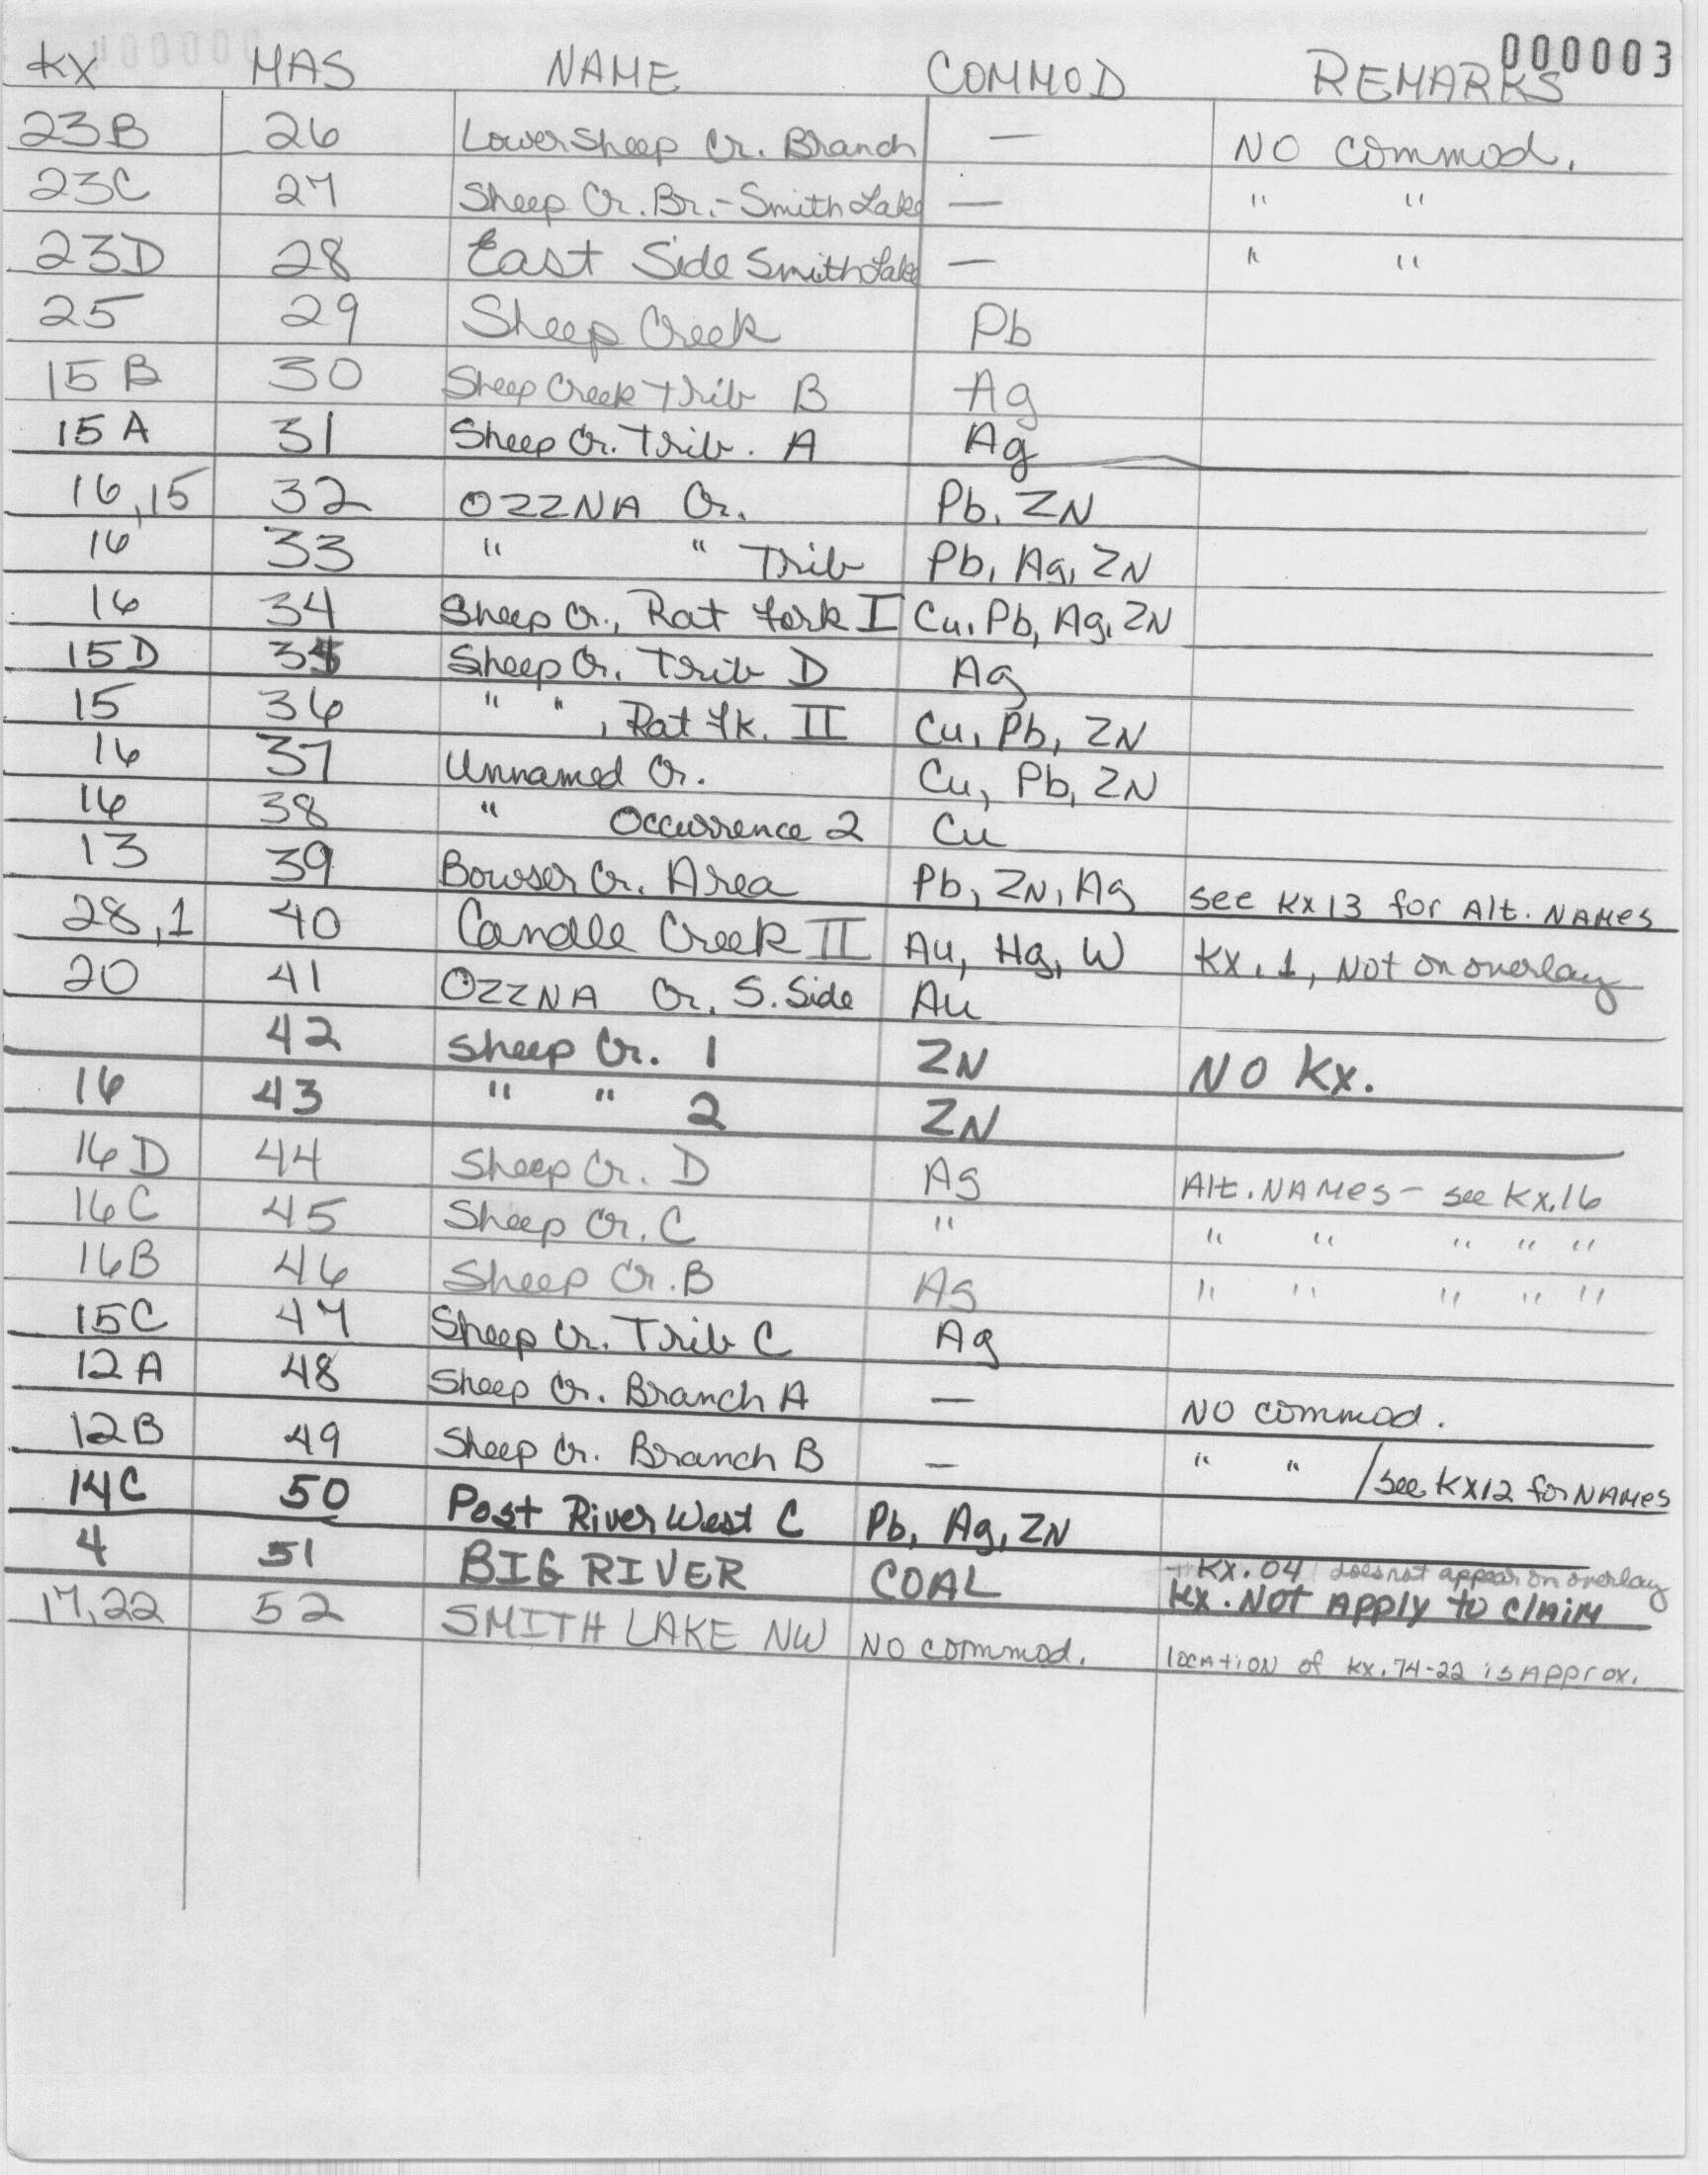 000003
KX MAS NAME COMMOD REMARKS
23B 26 Lower Sheep Cr. Branch — NO commod.
23C 27 Sheep Cr. Br.- Smith Lake — " "
23D 28 East Side Smith Lake — " "
25 29 Sheep Creek Pb
15B 30 Sheep Creek Trib B Ag
15A 31 Sheep Cr. Trib. A Ag
16,15 32 OZZNA Cr. Pb, ZN
16 33 " " Trib Pb, Ag, ZN
16 34 Sheep Cr., Rat Fork I Cu, Pb, Ag, ZN
15D 35 Sheep Cr. Trib D Ag
15 36 " " , Rat Fk. II Cu, Pb, ZN
16 37 Unnamed Cr. Cu, Pb, ZN
16 38 " Occurrence 2 Cu
13 39 Bowser Cr. Area Pb, ZN, Ag see KX13 for Alt. NAMES
28,1 40 Candle Creek II Au, Hg, W KX.1, Not on overlay
20 41 OZZNA Cr. S. Side Au
42 Sheep Cr. 1 ZN NO KX.
16 43 " " 2 ZN
16D 44 Sheep Cr. D Ag Alt. NAMES - see KX.16
16C 45 Sheep Cr. C " " " " " "
16B 46 Sheep Cr. B Ag " " " " "
15C 47 Sheep Cr. Trib C Ag
12A 48 Sheep Cr. Branch A — NO commod.
12B 49 Sheep Cr. Branch B — " " / see KX12 for NAMES
14C 50 Post River West C Pb, Ag, ZN
4 51 BIG RIVER COAL KX.04 does not appear on overlay
KX. NOT Apply to claim
17,22 52 SMITH LAKE NW NO commod. location of KX.74-22 is Approx.